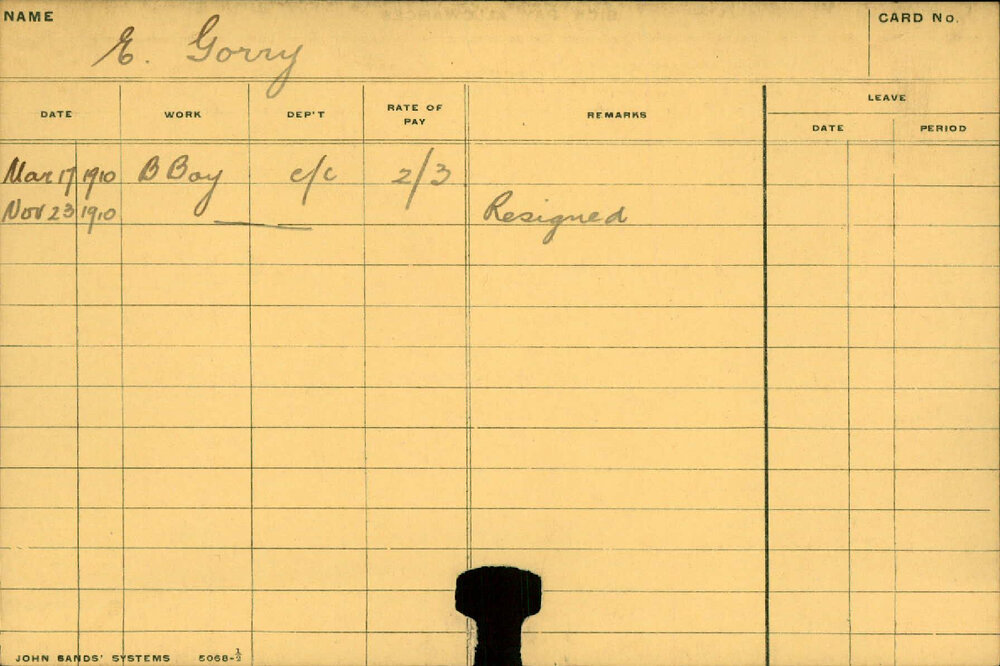 NAME E. Gorry CARD No.
DATE WORK DEP'T RATE OF PAY REMARKS LEAVE
DATE PERIOD
Mar 17 1910 B Boy c/c 2/3
Nov 23 1910 Resigned
JOHN SANDS' SYSTEMS 5068-½